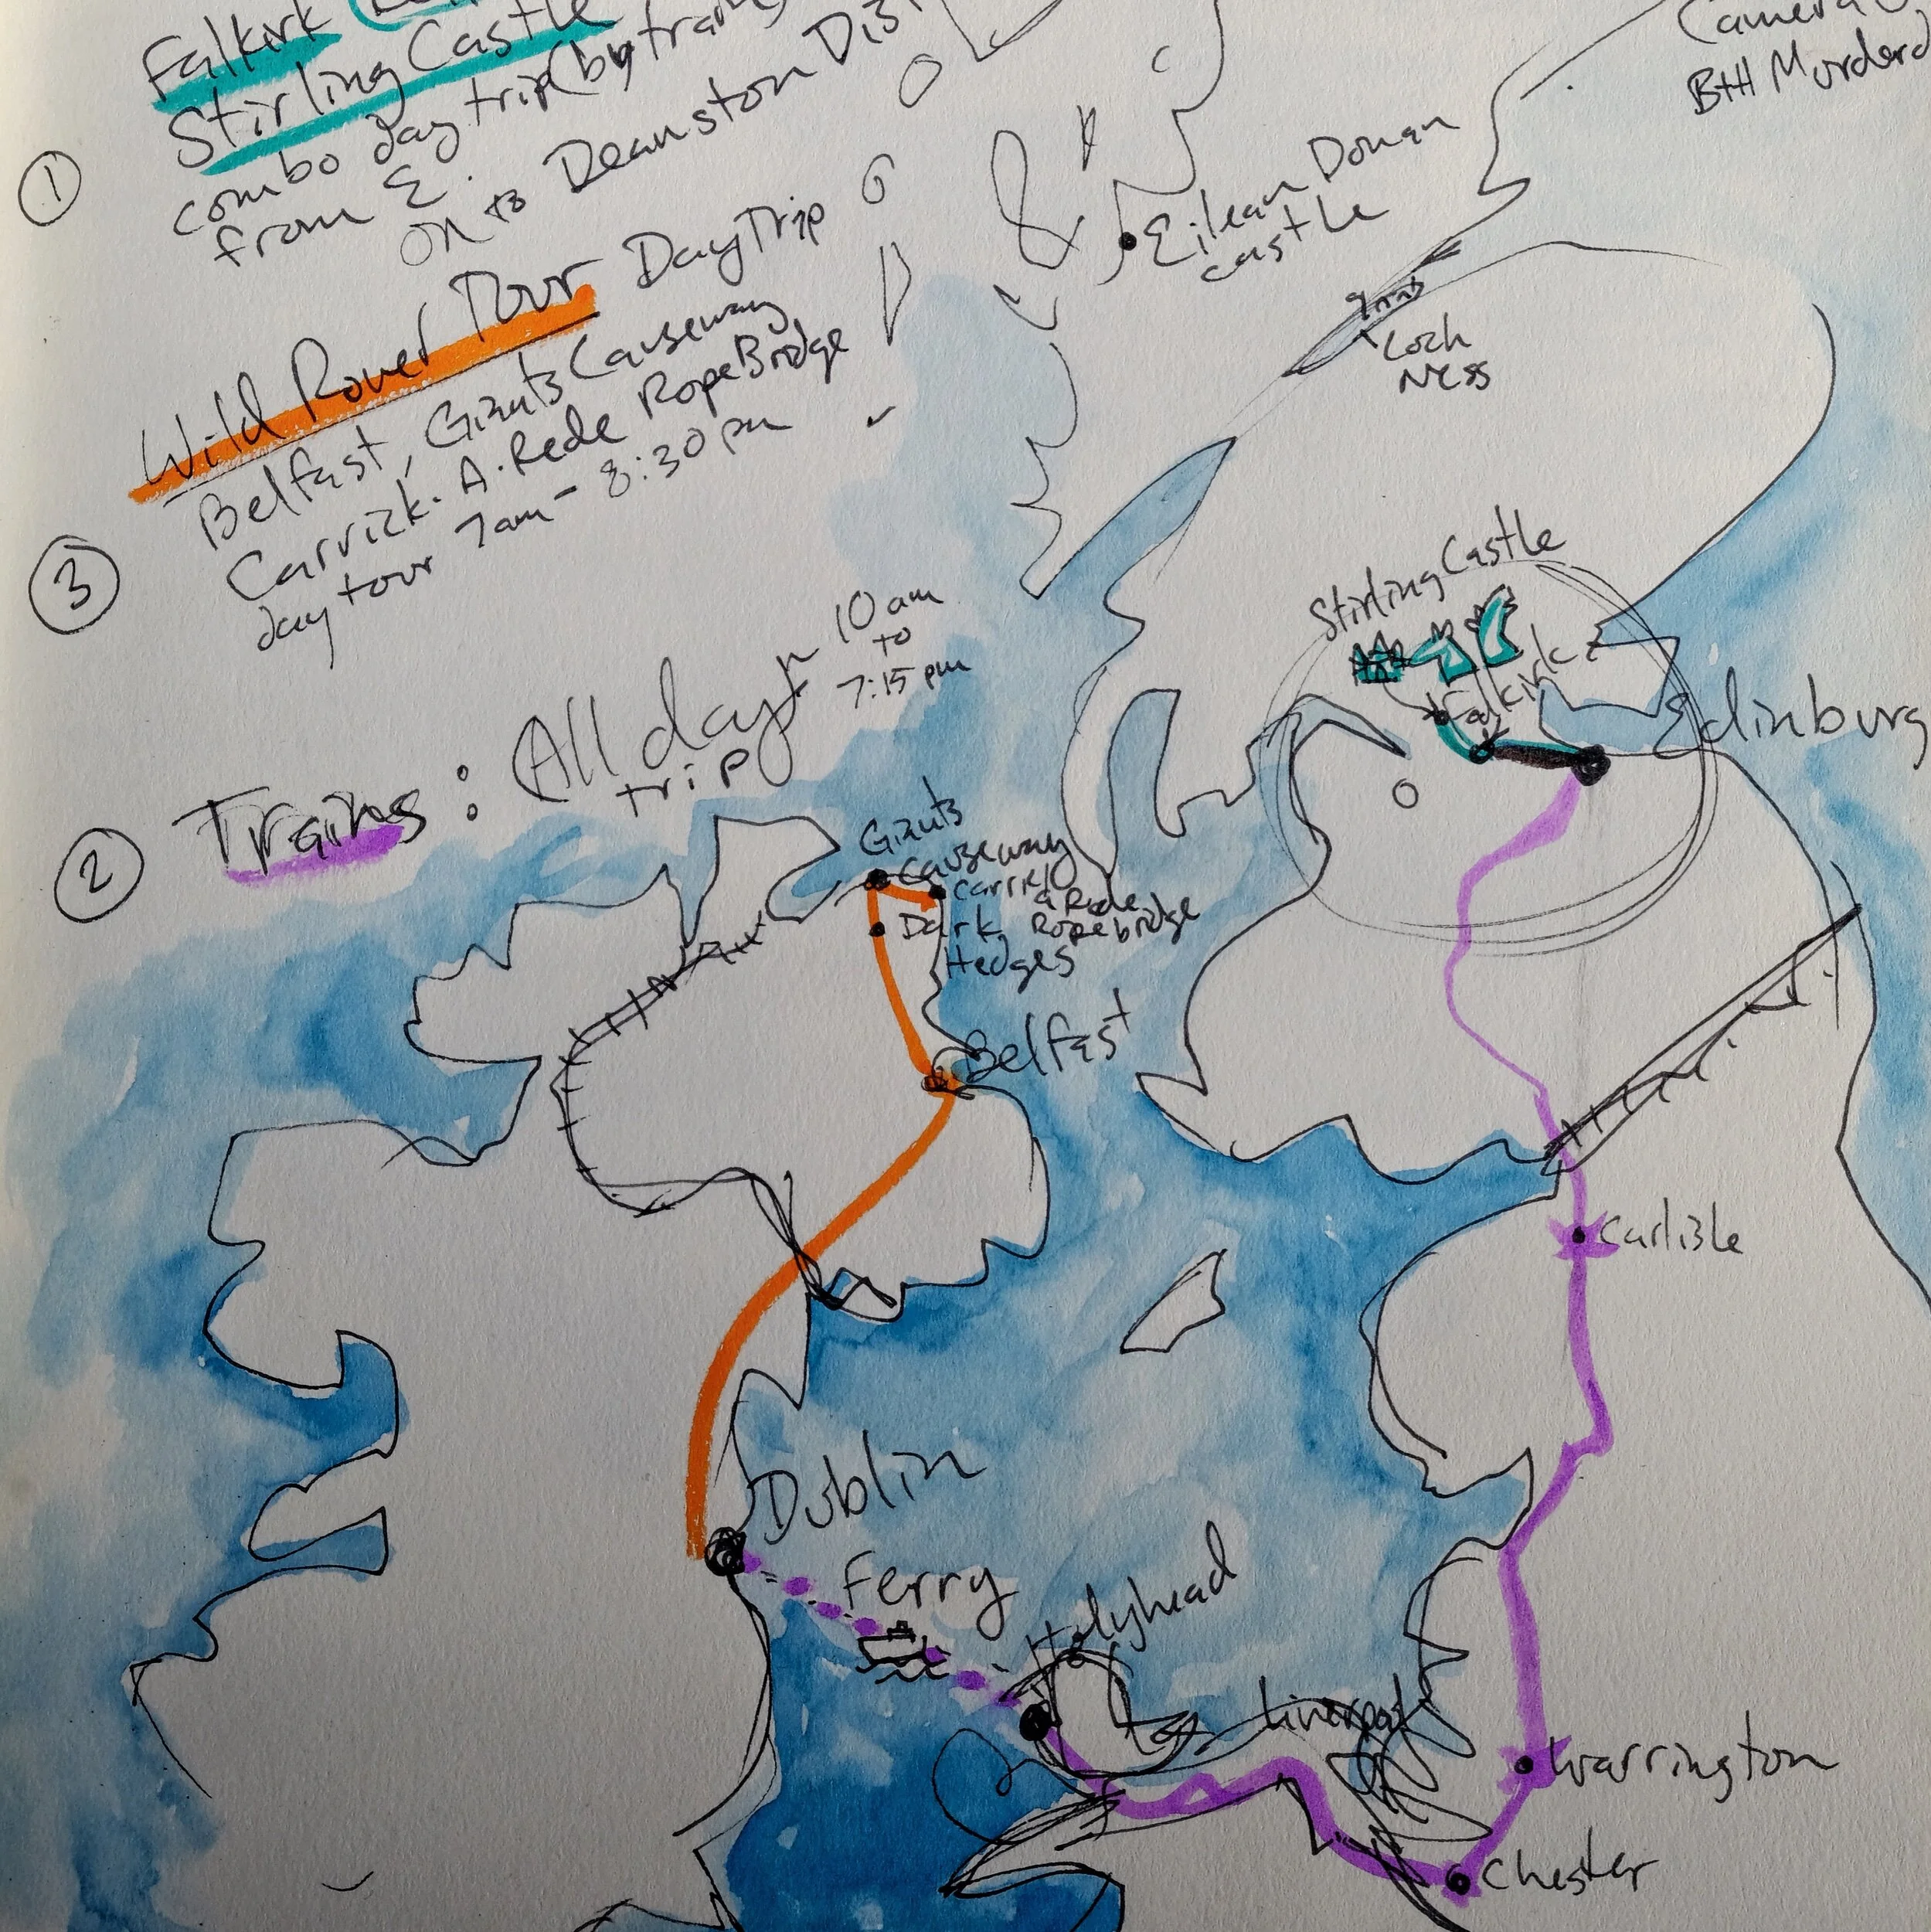 Falkirk
Stirling Castle
combo day trip (by train)
from E.
on to Deanston Dist
①
Wild Rover Tour Day Trip
Belfast, Giants Causeway
Carrick-A-Rede Rope Bridge
day tour 7am - 8:30 pm
③
Trains: All day trip
10 am
to
7:15 pm
②
Camera O
BHH Murderd
Eilean Donan
castle
Loch
Ness
Stirling Castle
Falkirk
Edinburg
Giants
Causeway
Carrick
a Rede
Ropebridge
Dark
Hedges
Belfast
Carlisle
Dublin
Ferry
Holyhead
Liverpool
Warrington
Chester